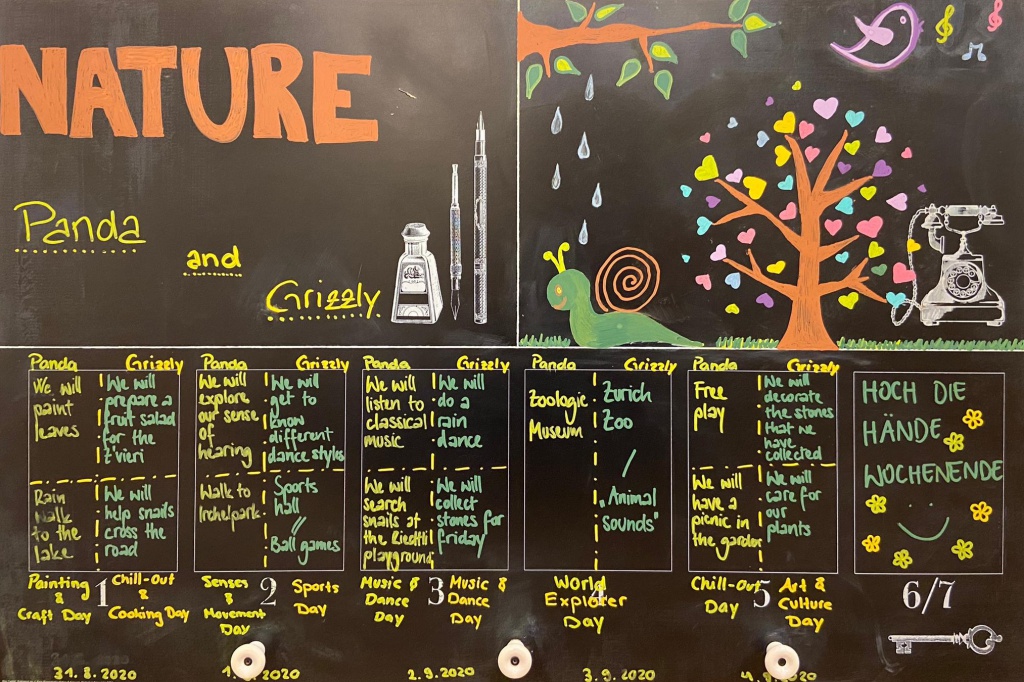 NATURE
Panda
and
Grizzly
Panda Grizzly
We will
paint
leaves
We will
prepare a
fruit salad
for the
z'vieri
Rain
walk
to the
lake
We will
help snails
cross the
road
Painting
&
Craft Day
1
Chill-Out
&
Cooking Day
31.8.2020
Panda Grizzly
We will
explore
our sense
of
hearing
We will
get to
know
different
dance styles
Walk to
Irchelpark
Sports
hall
//
Ball games
Senses
&
Movement
Day
2
Sports
Day
2020
Panda Grizzly
We will
listen to
classical
music
We will
do a
rain
dance
We will
search
snails at
the Riedtli
playground
We will
collect
stones for
friday
Music &
Dance
Day
3
Music &
Dance
Day
2.9.2020
Panda Grizzly
Zoologic
Museum
Zurich
Zoo
/
„Animal
sounds"
4
World
Explorer
Day
3.9.2020
Panda Grizzly
Free
play
We will
decorate
the stones
that we
have
collected
We will
have a
picnic in
the garden
We will
care for
our
plants
Chill-Out
Day
5
Art &
Culture
Day
2020
HOCH DIE
HÄNDE
WOCHENENDE
6/7